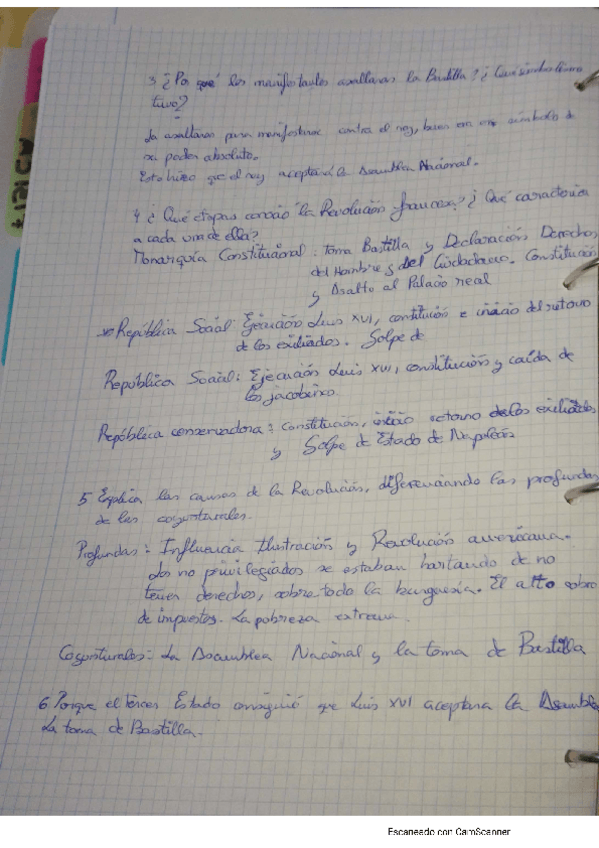 3 ¿Por qué los manifestantes asaltaron la Bastilla? ¿Qué simbolismo
tuvo?
La asaltaron para manifestarse contra el rey, pues era un símbolo de
su poder absoluto.
Esto hizo que el rey aceptara la Asamblea Nacional.
4 ¿Qué etapas conoció la Revolución francesa? ¿Qué caracteriza
a cada una de ella?
Monarquía Constitucional: toma Bastilla y Declaración Derechos
del Hombre y del Ciudadano. Constitución
y Asalto al Palacio real
República Social: Ejecución Luis XVI, constitución e inicio del retorno
de los exiliados. Golpe de
República Social: Ejecución Luis XVI, constitución y caída de
los jacobinos.
República conservadora: Constitución, inicio retorno de los exiliados
y Golpe de Estado de Napoleón
5 Explica las causas de la Revolución, diferenciando las profundas
de las coyunturales.
Profundas: Influencia Ilustración y Revolución americana.
Los no privilegiados se estaban hartando de no
tener derechos, sobre todo la burguesía. El alto cobro
de impuestos. La pobreza extrema.
Coyunturales: La Asamblea Nacional y la toma de Bastilla
6 Porque el tercer Estado consiguió que Luis XVI aceptara la Asamblea
La toma de Bastilla.
Escaneado con CamScanner